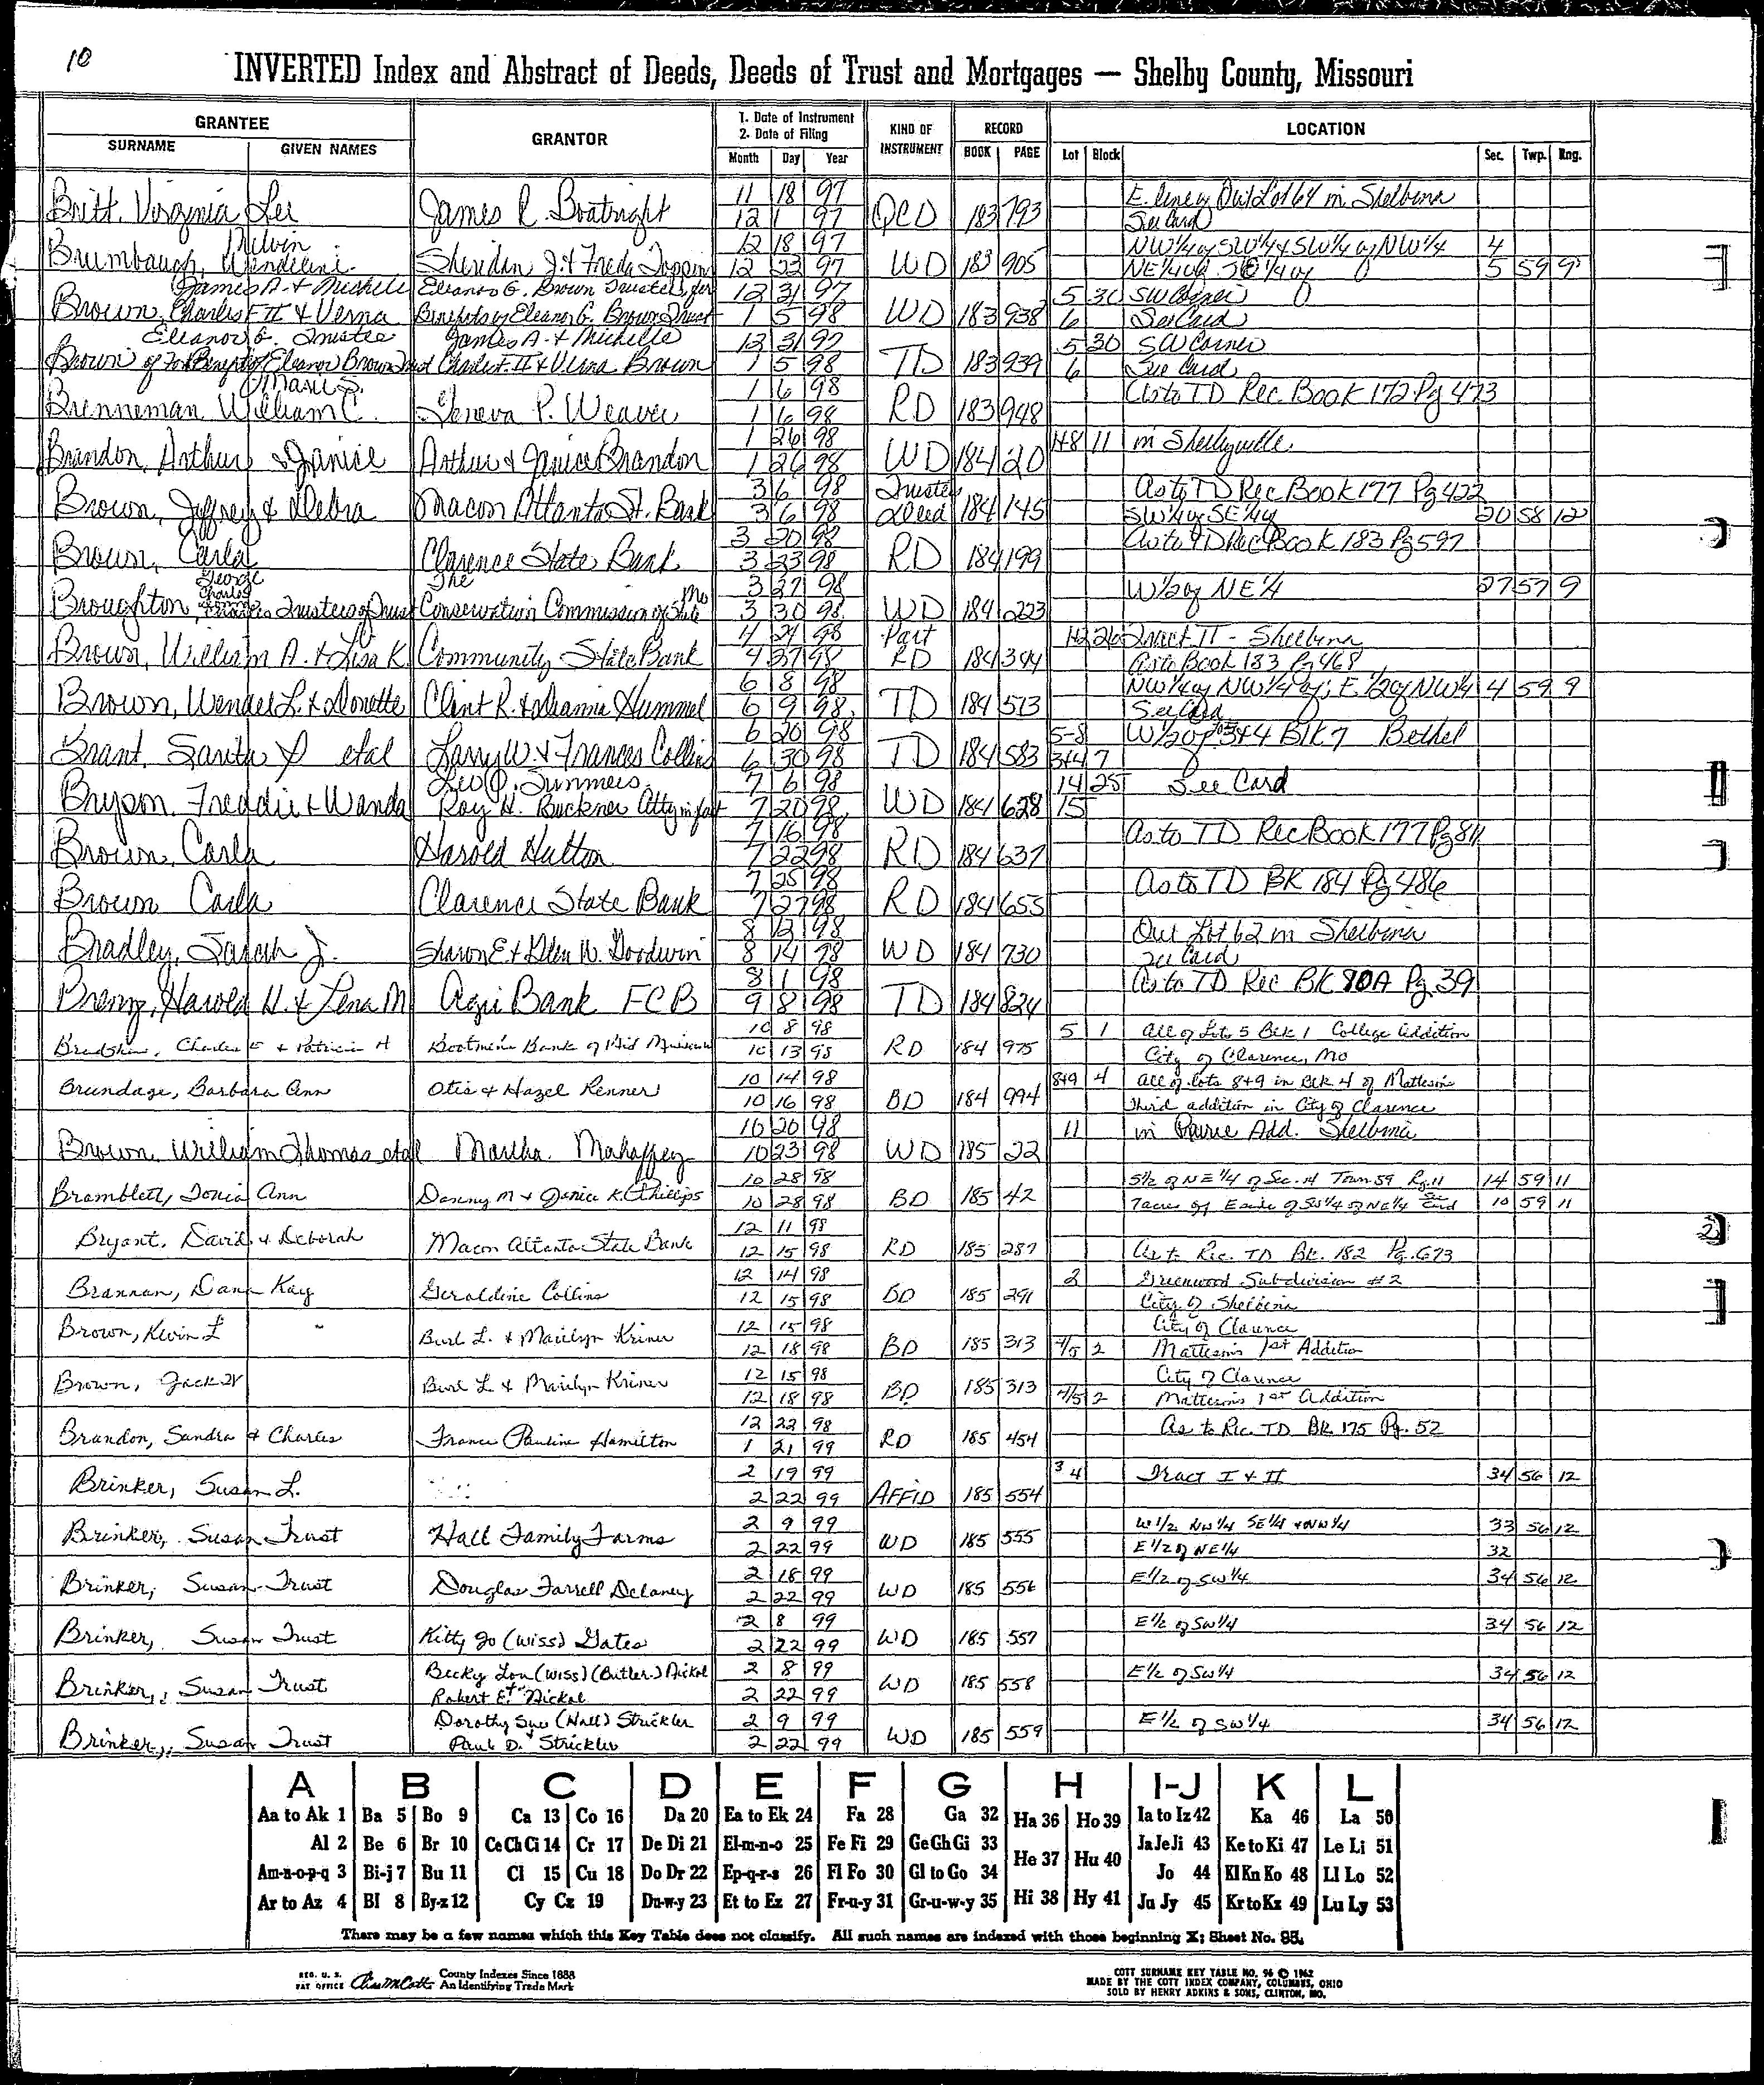 10
INVERTED Index and Abstract of Deeds, Deeds of Trust and Mortgages — Shelby County, Missouri
GRANTEE
SURNAME GIVEN NAMES
GRANTOR
1. Date of Instrument
2. Date of Filing
Month Day Year
KIND OF
INSTRUMENT
RECORD
BOOK PAGE
LOCATION
Lot Block Sec. Twp. Rng.
Britt, Virginia Lee James R. Boatright 11 18 97 QCD 183 793 E. line of Out Lot 64 in Shelbina
12 1 97 See Card
Brumbaugh, Sheridan J. & Freda 12 18 97 WD 183 905 NW 1/4 of SW 1/4 & SW 1/4 of NW 1/4 4
12 23 97 NE 1/4 of SE 1/4 of 5 59 9
James A. & Michele Eleanor G. Brown Trustee for 12 31 97 5 30 SW Corner
Brown, Charles F. II & Verna Benefit of Eleanor G. Brown Trust 1 5 98 WD 183 938 6 See Card
Eleanor G. Trustee James A. & Michelle 12 31 97 5 30 SW Corner
Brown of For Benefit of Eleanor Brown Trust Charles F. II & Verna Brown 1 5 98 TD 183 939 6 See Card
Marie S. 1 6 98 As to TD Rec. Book 172 Pg 473
Brenneman, William C. Geneva P. Weaver 1 6 98 RD 183 948
1 26 98
Brandon, Arthur & Janice Arthur & Janice Brandon 1 26 98 WD 184 20 1+8 11 in Shelbyville
3 6 98 Trustee As to TD Rec Book 177 Pg 422
Brown, Jeffrey & Debra Macon Atlanta St. Bank 3 6 98 Deed 184 145 SW 1/4 of SE 1/4 20 58 12
3 20 98 As to TD Rec Book 183 Pg 597
Brown, Carla Clarence State Bank 3 23 98 RD 184 199
George Charles The 3 27 98 W 1/2 of NE 1/4 27 57 9
Broughton, Trustees of Trust Conservation Commission of State Mo 3 30 98 WD 184 223
4 24 98 Part Tract II - Shelbina
Brown, William A. & Lisa K Community State Bank 4 27 98 RD 184 344 As to Book 183 Pg 468
6 8 98 NW 1/4 of NW 1/4 of; E 1/2 of NW 1/4 4 59 9
Brown, Wendel L. & Donette Clint R. & Deanna Hummel 6 9 98 TD 184 513 See Card
6 20 98 5-8 W 1/2 of 3+4 Blk 7 Bethel
Brant, etal Larry W. & Frances Collins 6 30 98 TD 184 583 3+4 7
Leo P. Summers 7 6 98 14 25 See Card
Bryson, Freddie & Wanda Roy H. Buckner Atty in fact 7 20 98 WD 184 628 15
7 16 98 As to TD Rec Book 177 Pg 811
Brown, Carla Harold Hutton 7 22 98 RD 184 637
7 25 98 As to TD BK 184 Pg 486
Brown Carla Clarence State Bank 7 27 98 RD 184 655
8 13 98 Out Lot 62 in Shelbina
Bradley, Sarah J. Sharon E. & Glen W. Goodwin 8 14 98 WD 184 730 See Card
8 1 98 As to TD Rec BK 80A Pg 39
Brenz, Harold H. & Lena M Agri Bank FCB 9 8 98 TD 184 824
10 8 98 5 1 All of Lots 5 Blk 1 College Addition
Bradshaw, Charles E & Patricia H Boatmens Bank of Mid Missouri 10 13 98 RD 184 975 City of Clarence, Mo
10 14 98 8+9 4 All of lots 8+9 in Blk 4 of Matteson
Brundage, Barbara Ann Otis & Hazel Renner 10 16 98 BD 184 994 third addition in City of Clarence
10 20 98 11 in Add. Shelbina
Brown, William Thomas etal Martha Mahaffey 10 23 98 WD 185 22
10 28 98 S 1/2 of NE 1/4 of Sec. 14 Town 59 Rg. 11 14 59 11
Bramblett, Tonia Ann Danny M & Janice K. Phillips 10 28 98 BD 185 42 7 acres off E side of SW 1/4 of NE 1/4 See Card 10 59 11
12 11 98
Bryant, David & Deborah Macon Atlanta State Bank 12 15 98 RD 185 287 As to Rec. TD Bk. 182 Pg. 673
12 14 98 2 Greenwood Subdivision #2
Brannan, Dana Kay Geraldine Collins 12 15 98 BD 185 291 City of Shelbina
12 15 98 City of Clarence
Brown, Kevin L " Burl L. & Marilyn Kriner 12 18 98 BD 185 313 4/5 2 Matteson's 1st Addition
12 15 98 City of Clarence
Brown, Jack W Burl L. & Marilyn Kriner 12 18 98 BD 185 313 4/5 2 Matteson's 1st Addition
12 22 98 As to Rec. TD Bk 175 Pg. 52
Brandon, Sandra & Charles France Pauline Hamilton 1 21 99 RD 185 454
2 19 99 3 4 Tract I & II 34 56 12
Brinker, Susan L. 2 22 99 AFFID 185 554
2 9 99 W 1/2 NW 1/4 SE 1/4 & NW 1/4 33 56 12
Brinker, Susan Trust Hall Family Farms 2 22 99 WD 185 555 E 1/2 of NE 1/4 32
2 18 99 E 1/2 of SW 1/4 34 56 12
Brinker, Susan Trust Douglas Farrell Delaney 2 22 99 WD 185 556
2 8 99 E 1/2 of SW 1/4 34 56 12
Brinker, Susan Trust Kitty Jo (Wiss) Gates 2 22 99 WD 185 557
Becky Lou (Wiss) (Butler) Nickol 2 8 99 E 1/2 of SW 1/4 34 56 12
Brinker, Susan Trust Robert E. Nickol 2 22 99 WD 185 558
Dorothy Sue (Hall) Strickler 2 9 99 E 1/2 of SW 1/4 34 56 12
Brinker, Susan Trust Paul D. Strickler 2 22 99 WD 185 559
A B C D E F G H I-J K L
Aa to Ak 1 Ba 5 Bo 9 Ca 13 Co 16 Da 20 Ea to Ek 24 Fa 28 Ga 32 Ha 36 Ho 39 Ia to Iz 42 Ka 46 La 50
Al 2 Be 6 Br 10 Ce Ch Ci 14 Cr 17 De Di 21 El-m-n-o 25 Fe Fi 29 Ge Gh Gi 33 He 37 Hu 40 Ja Je Ji 43 Ke to Ki 47 Le Li 51
Am-n-o-p-q 3 Bi-j 7 Bu 11 Cl 15 Cu 18 Do Dr 22 Ep-q-r-s 26 Fl Fo 30 Gl to Go 34 Jo 44 Kl Kn Ko 48 Ll Lo 52
Ar to Az 4 Bl 8 By-z 12 Cy Cz 19 Du-w-y 23 Et to Ez 27 Fr-u-y 31 Gr-u-w-y 35 Hi 38 Hy 41 Ju Jy 45 Kr to Kz 49 Lu Ly 53
There may be a few names which this Key Table does not classify. All such names are indexed with those beginning X; Sheet No. 95.
REG. U. S.
PAT OFFICE
County Indexes Since 1888
An Identifying Trade Mark
COTT SURNAME KEY TABLE NO. 96 © 1962
MADE BY THE COTT INDEX COMPANY, COLUMBUS, OHIO
SOLD BY HENRY ADKINS & SONS, CLINTON, MO.